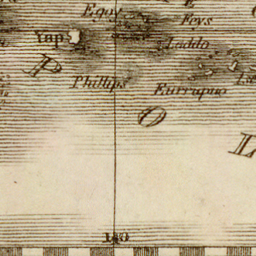 Egoy
Feys
Yap
Loddo
P
Phillips
Eurrupuo
O
L
140